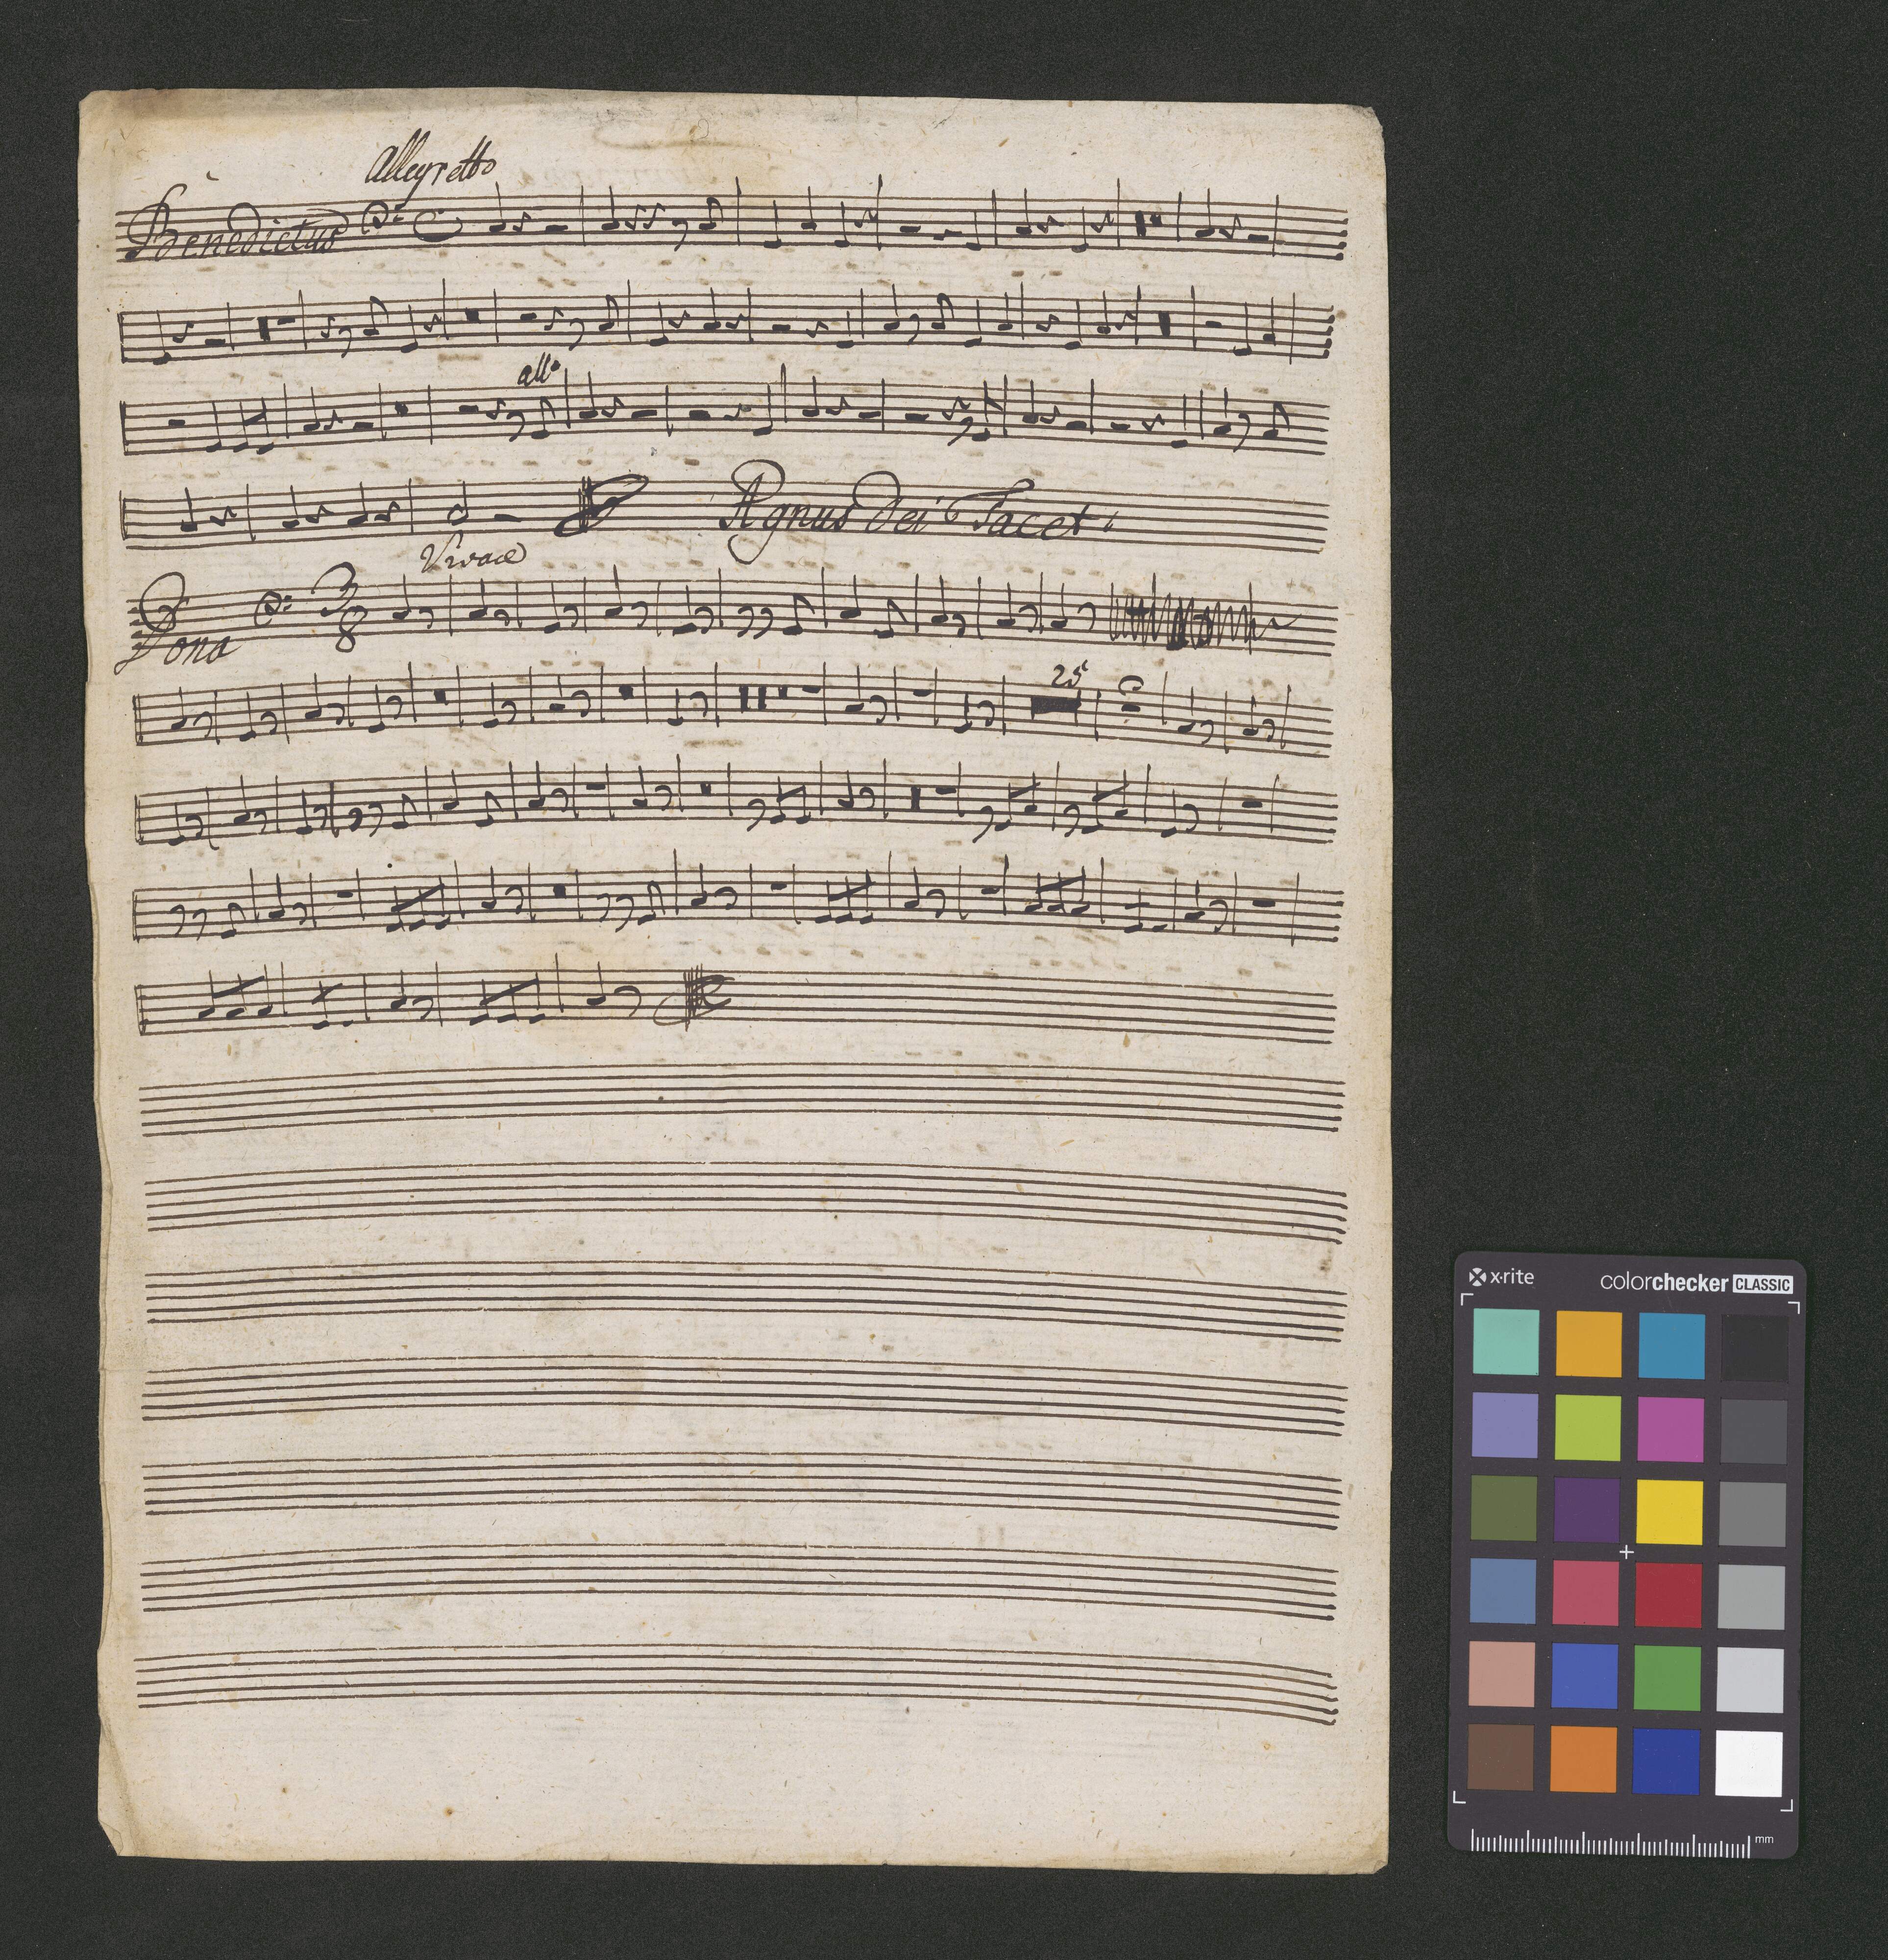 Allegretto
Benedictus
all°
Agnus Dei Tacet
Vivace
Dona 3/8
25
x·rite colorchecker CLASSIC
mm